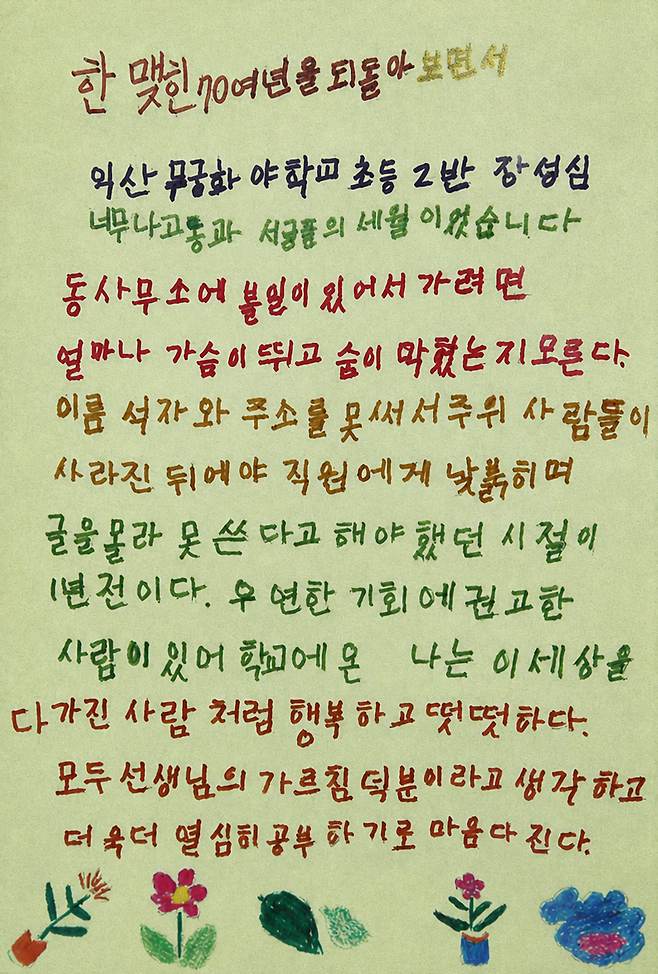 한 맺힌 70여년을 되돌아 보면서
익산 무궁화 야학교 초등 2반 장성심
너무나고통과 서글픔의 세월 이었습니다
동사무소에 볼일이 있어서 가려면
얼마나 가슴이 뛰고 숨이 막혔는지 모른다.
이름 석자와 주소를 못써서 주위 사람들이
사라진 뒤에야 직원에게 낯붉히며
글을몰라 못 쓴 다고 해야 했던 시절이
1년전이다. 우연한 기회에 권고한
사람이 있어 학교에 온 나는 이세상을
다가진 사람 처럼 행복하고 떳떳하다.
모두 선생님의 가르침 덕분이라고 생각하고
더욱더 열심히 공부 하기로 마음다진다.